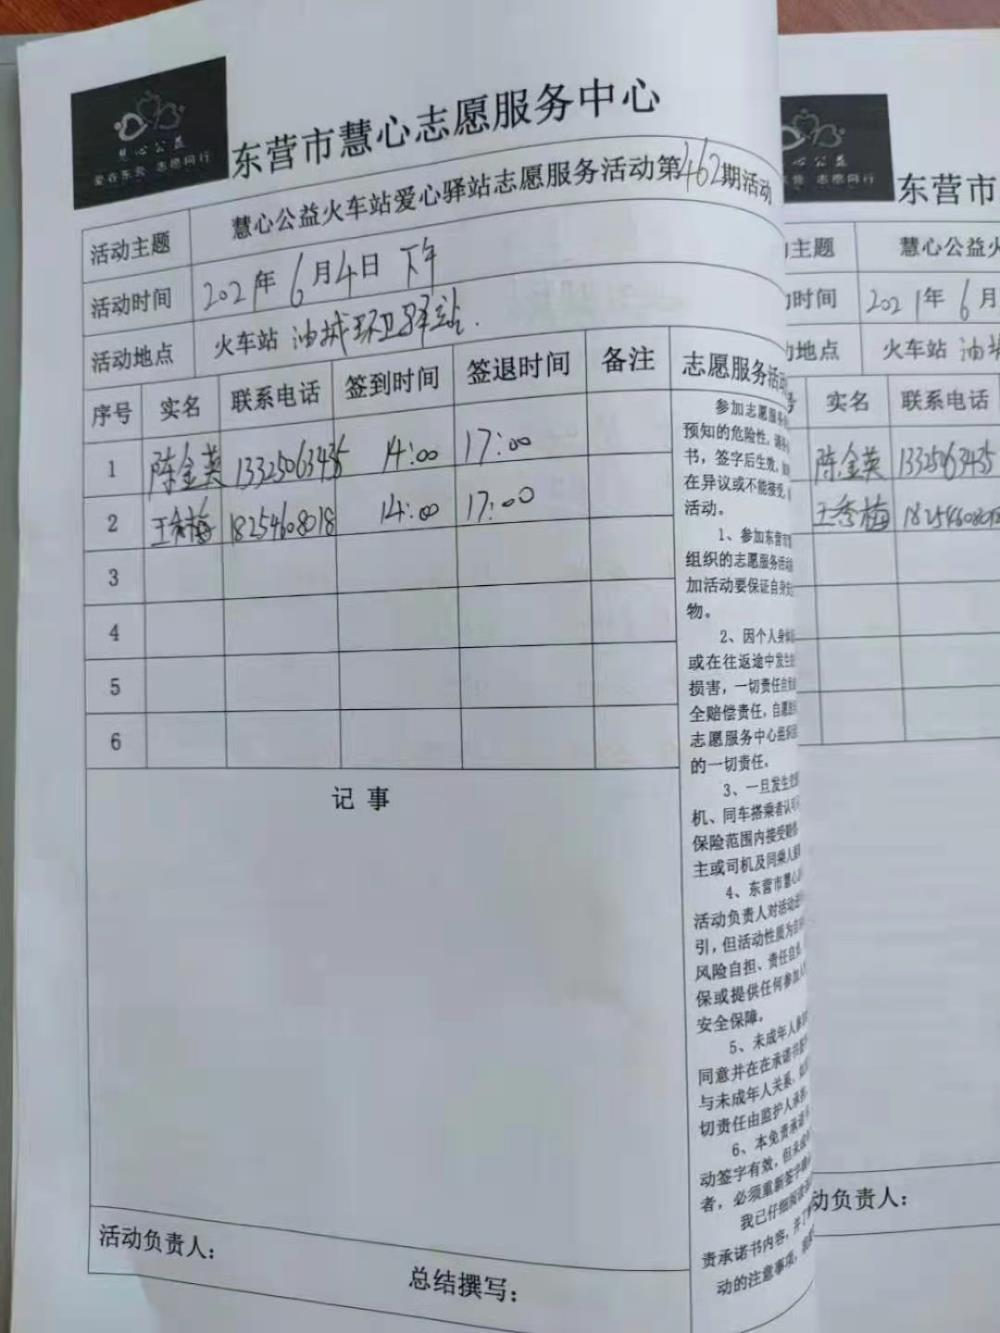 慧心公益
爱在东营 志愿同行
东营市慧心志愿服务中心
活动主题 慧心公益火车站爱心驿站志愿服务活动第462期活动
活动时间 2021年6月4日 下午
活动地点 火车站 油城环卫驿站.
序号 实名 联系电话 签到时间 签退时间 备注
1 陈金英 13325063435 14:00 17:00
2 王秀梅 18254608018 14:00 17:00
3
4
5
6
记 事
活动负责人:
总结撰写:
志愿服务活动
参加志愿服务
预知的危险性,请
书,签字后生效,
在异议或不能接受,
活动。
1、参加东营市
组织的志愿服务活动
加活动要保证自身
物。
2、因个人身
或在往返途中发生
损害,一切责任自
全赔偿责任,自愿
志愿服务中心组织
的一切责任。
3、一旦发生
机、同车搭乘者认可
保险范围内接受赔
主或司机及同乘人
4、东营市慧心
活动负责人对活动
引,但活动性质为自
风险自担、责任自负
保或提供任何参加
安全保障。
5、未成年人参
同意并在在承诺书
与未成年人关系,
切责任由监护人承
6、本免责承诺书
动签字有效,但未
者,必须重新签字
我已仔细阅读
责承诺书内容,并了
动的注意事项,
公益
志愿同行
东营市
主题 慧心公益火
时间 2021年6月
地点 火车站 油
号 实名 联系电话
陈金英 13325063435
王秀梅
动负责人: